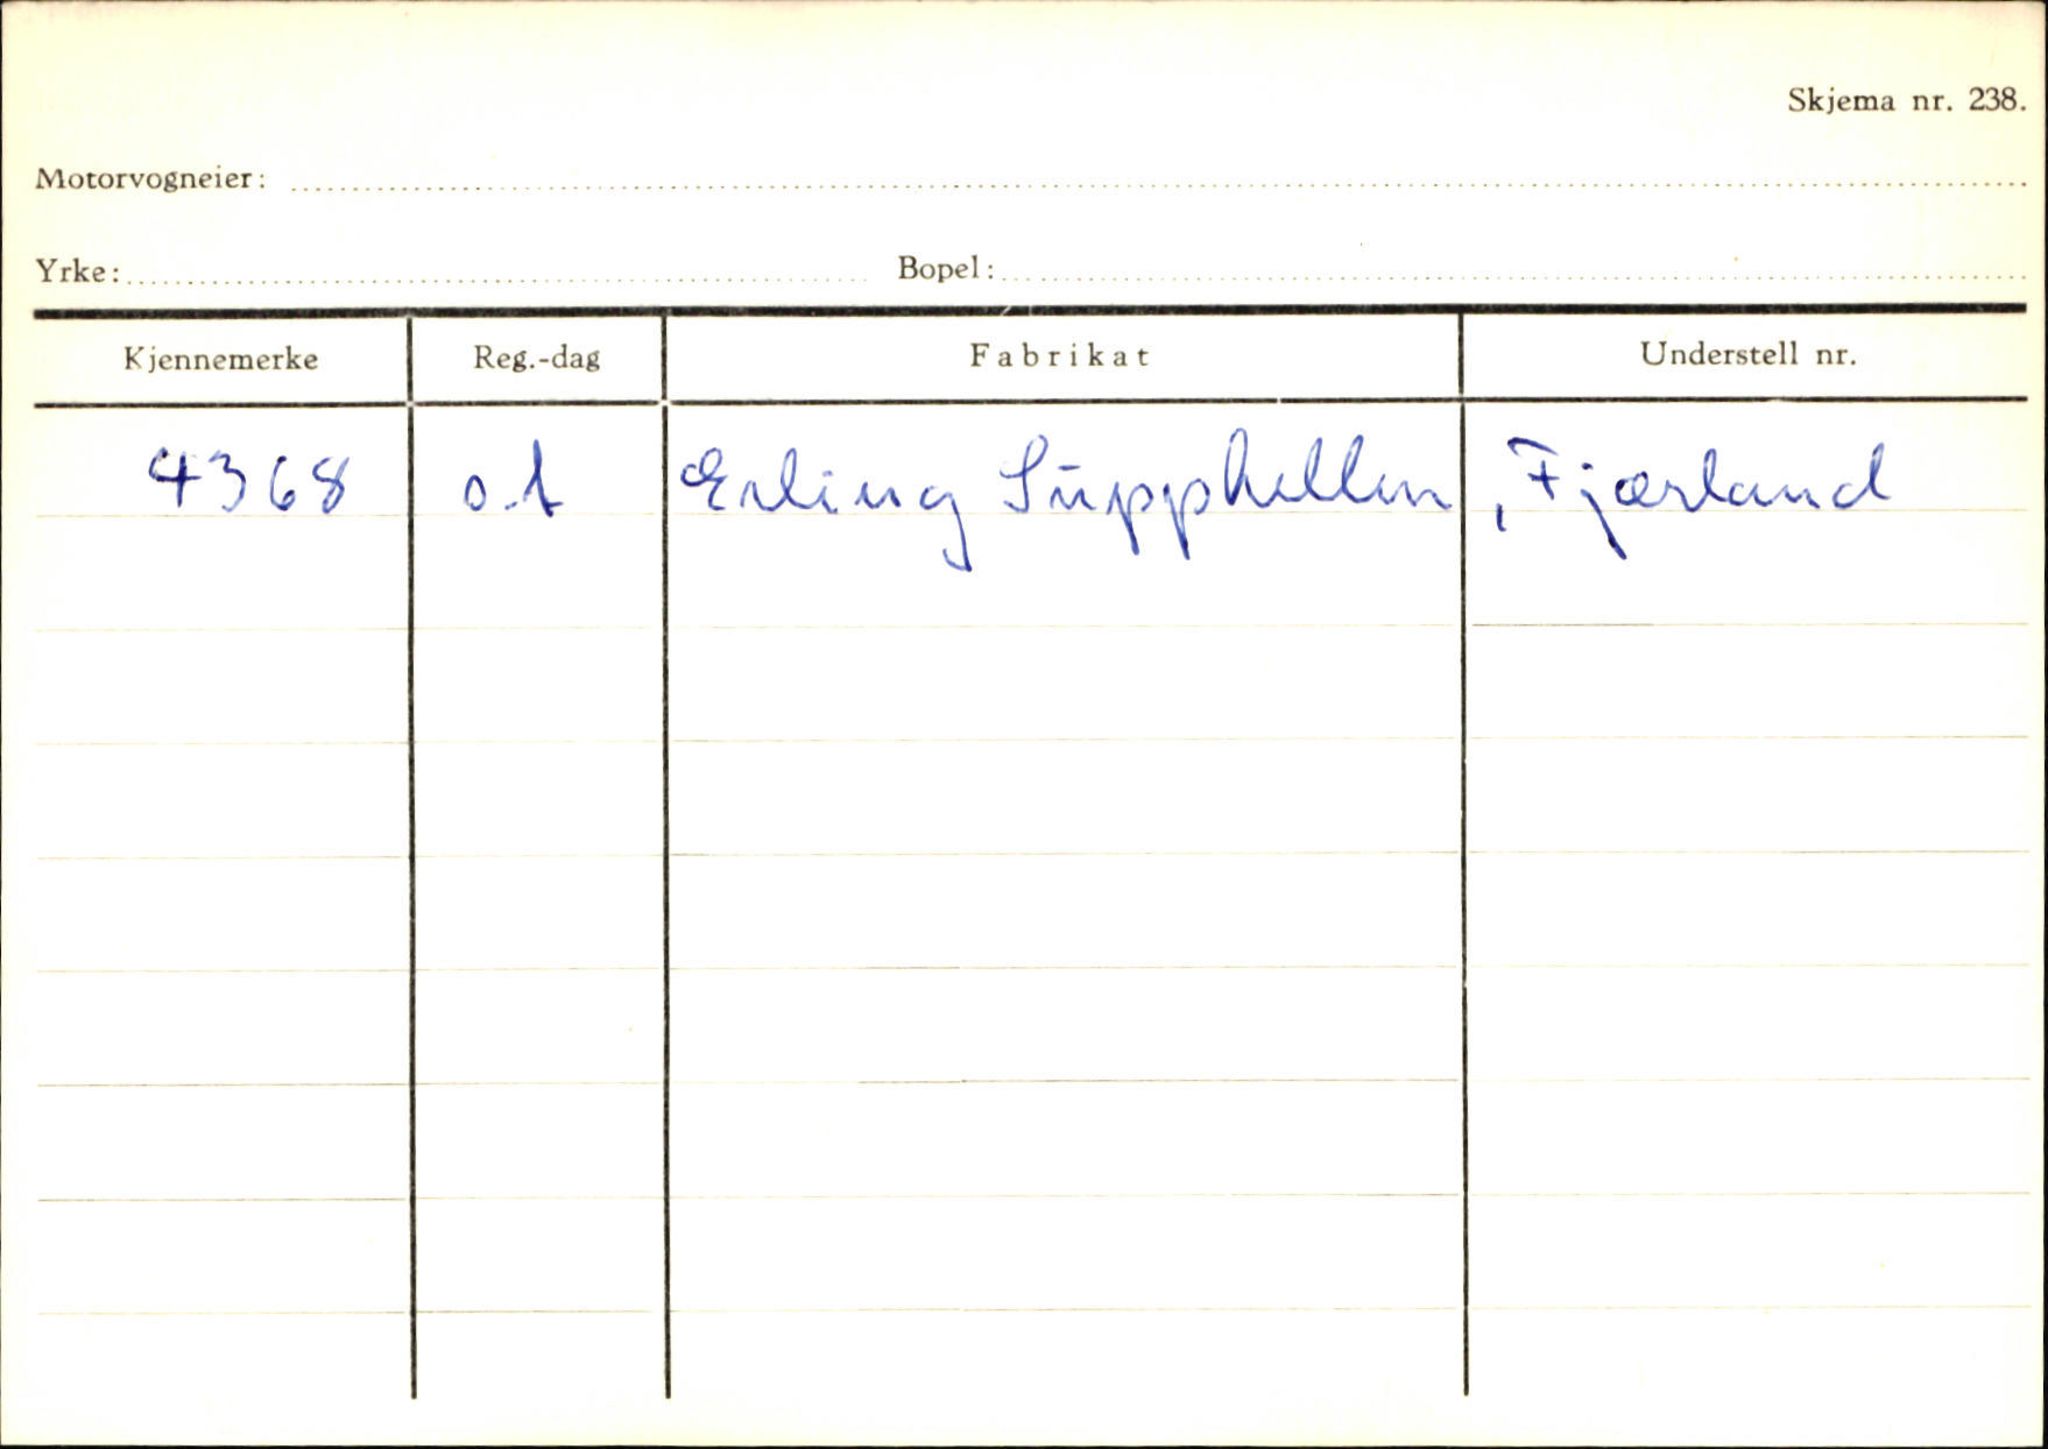 Skjema nr. 238.
Motorvogneier:
Yrke: Bopel:
Kjennemerke Reg.-dag Fabrikat Understell nr.
4368 o.t Erling Supphellen , Fjærland